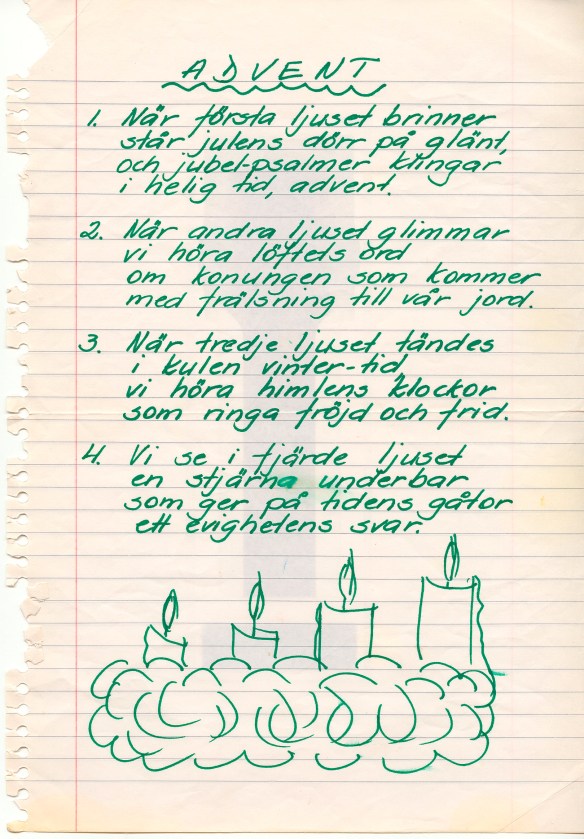 ADVENT
1. När första ljuset brinner
står julens dörr på glänt,
och jubel-psalmer klingar
i helig tid, advent.
2. När andra ljuset glimmar
vi höra löftets ord
om konungen som kommer
med frälsning till vår jord.
3. När tredje ljuset tändes
i kulen vinter-tid
vi höra himlens klockor
som ringa fröjd och frid.
4. Vi se i fjärde ljuset
en stjärna underbar
som ger på tidens gåtor
ett evighetens svar.